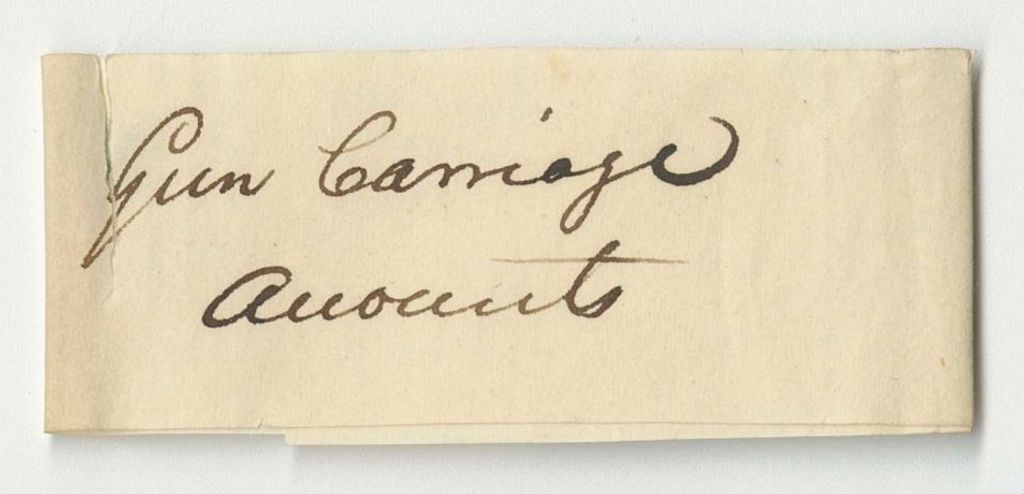 Gun Carriage
Accounts